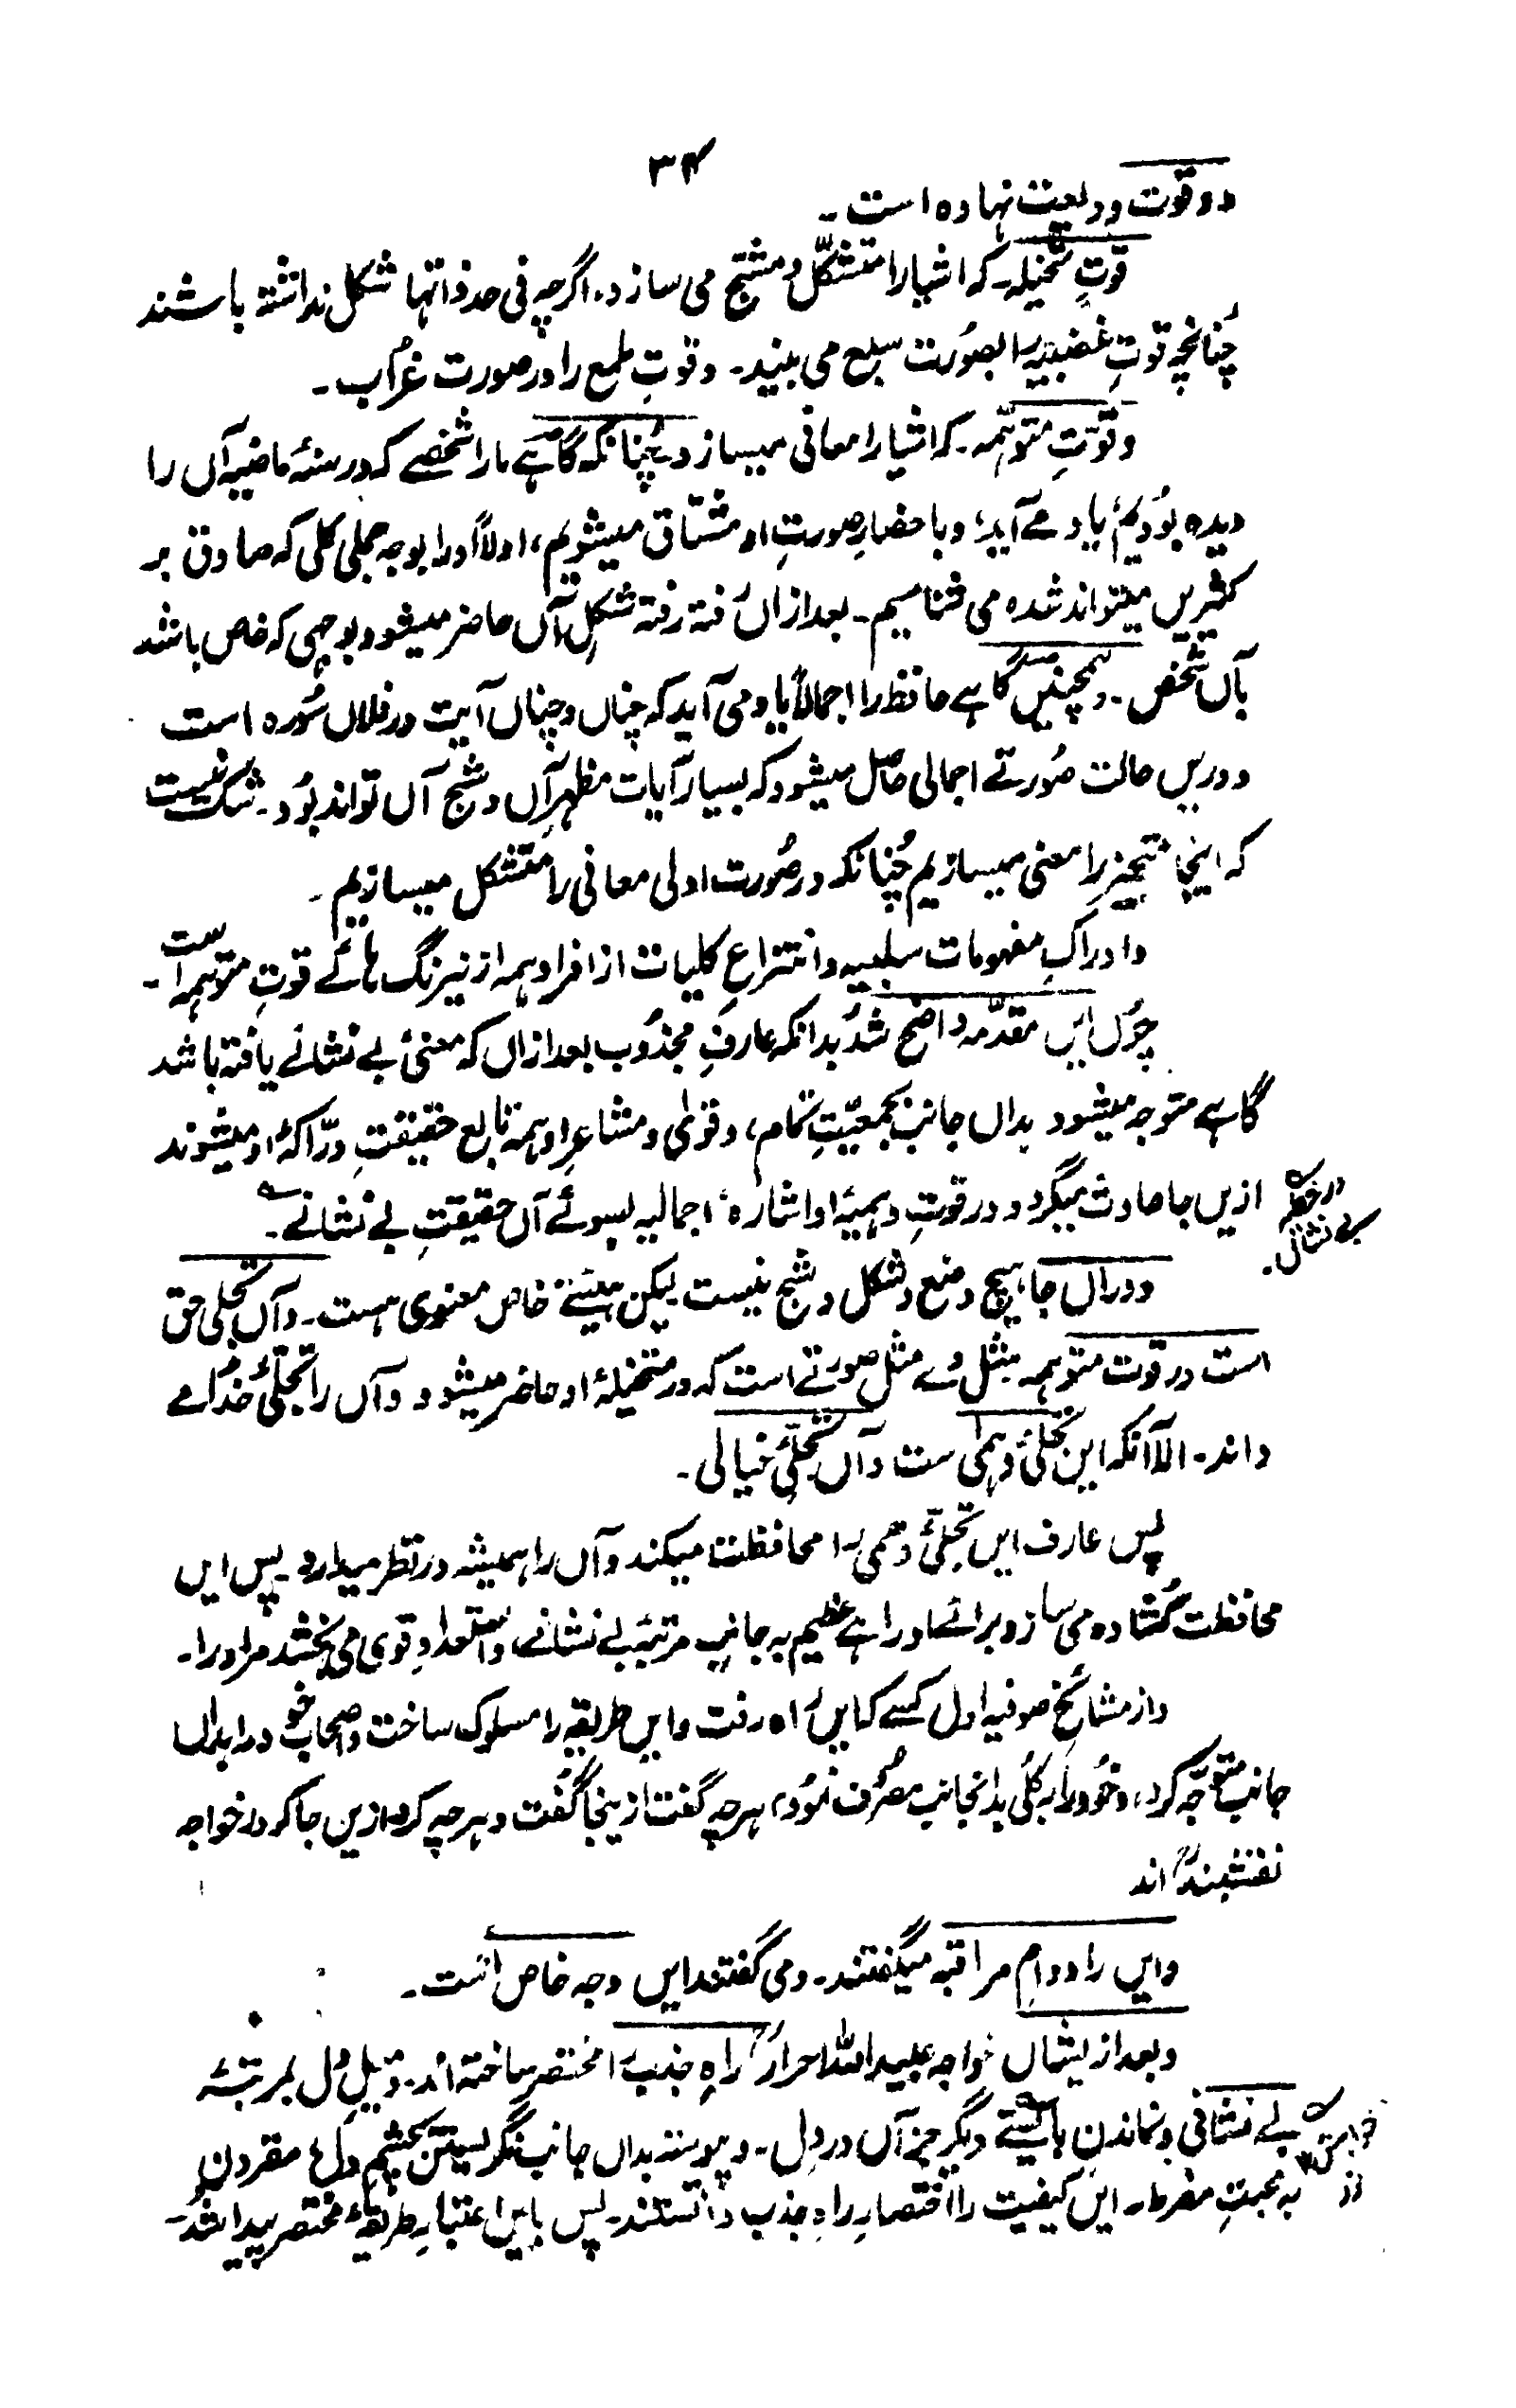 ۳۴
دو قوت ودیعت نهاده است۔
قوتِ متخیلہ۔ کہ اشیا را متشکّل و متشبح می سازد۔ اگرچہ فی حد ذاتہا شکل نداشتہ باشند
چُنانچہ قوتِ غضبیہ را بصُورت سبع می بیند۔ و قوتِ طمع را در صورت غُراب۔
و قوّتِ متوہّمہ۔ کہ اشیا را معانی میسازد۔ چُنانکہ گاہے ما را شخصے کہ در سنۂ ماضیہ آں را
دیدہ بُودیم یاد مے آید، و باحضارِ صورتِ او مشتاق میشویم، اولاً او را بوجہ جملی کلی کہ صادق بر
کثیریں میتواند شدہ می شناسیم۔ بعد ازاں رفتہ رفتہ شکلِ آں حاضر میشود بوجہی کہ خاص باشد
بآں شخص۔ و ہمچنیں گاہے حافظ را اجمالاً یاد می آید کہ چناں و چناں آیت در فلاں سُورہ است
و دریں حالت صُورتے اجمالی حاصل میشود کہ بسیار آیات مظہرِ آں و شبح آں تواند بُود۔ شک نیست
کہ اینجا متحیّز را معنی میسازیم چُنانکہ در صُورت اولی معانی را متشکل میسازیم۔
و ادراکِ مفہومات سلبیہ و انتزاعِ کلیات از افراد ہمہ از نیرنگ ہائے قوتِ متوہمہ است۔
چوُں ایں مقدّمہ واضح شُد بدانکہ عارفِ مجذوُب بعد ازاں کہ معنیٔ بے نشانے یافتہ باشد
گاہے متوجہ میشود بداں جانب بجمعیّتِ تمام، و قویٰ و مشاعرِ او ہمہ تابع حقیقتِ درّاکۂ او میشوند
ازیں جا حادث میگردد در قوتِ وہمیۂ او اشارۂ اجمالیہ بسوئے آں حقیقتِ بے نشانے۔
بے نشانی۔
و در آں جا ہیچ وضع و شکل و شبح نیست لیکن ہیئتے خاص معنوی ہست۔ و آں تجلی حق
است در قوت متوہمہ بمثل وے مثل صورتے است کہ در متخیلۂ او حاضر میشود و آں را تجلیٔ خدُا مے
داند۔ الّا آنکہ ایں تجلیٔ وہمی ست و آں تجلّیٔ خیالی۔
پس عارف ایں تجلّیٔ وہمی را محافظت میکند و آں را ہمیشہ در نظر میدارد۔ پس ایں
محافظت کُشادہ می سازد برائے او راہے عظیم بہ جانب مرتبۂ بے نشانے، و استعدادِ قوی می بخشد مر او را۔
و از مشائخِ صوفیہ اول کسے کہ ایں راہ رفت و ایں طریقہ را مسلوک ساخت و اصحاب خود را بداں
جانب متوجّہ کرد، و خُود را بہ کُلّی بدانجانب مصرُف نمُود، ہرچہ گفت ازینجا گُفت و ہرچہ کرد ازین جا کرد۔ خواجہ
نقشبندؒ اند
و ایں را دوامِ مراقبہ میگفتند۔ و می گفتند ایں وجہ خاص است۔
و بعد ازیشاں خواجہ عبیداللہ احرارؒ راہِ جذب را مختصر ساختہ اند۔ و میلِ دل بمرتبۂ
بے نشانی و نماندن بایستے دیگر جز آں در دِل۔ و پیوستہ بداں جانب نگریستن بچشمِ دل، مقروُن
بہ محبتِ مفرطہ۔ ایں کیفیت را اختصارِ راہِ جذب دانستند۔ پس بایں اعتبار طریقۂ مختصر پیدا شُد۔